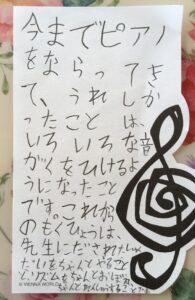 今までピアノ
をならってき
て、うれしか
ったことは、
いろいろな音
がくをひけるよ
うになったこと
です。これから
のもくひょうは、
先生にだされたしゅく
だいをちゃんとやること
ちゃんと することです。
© VIENNA WORLD